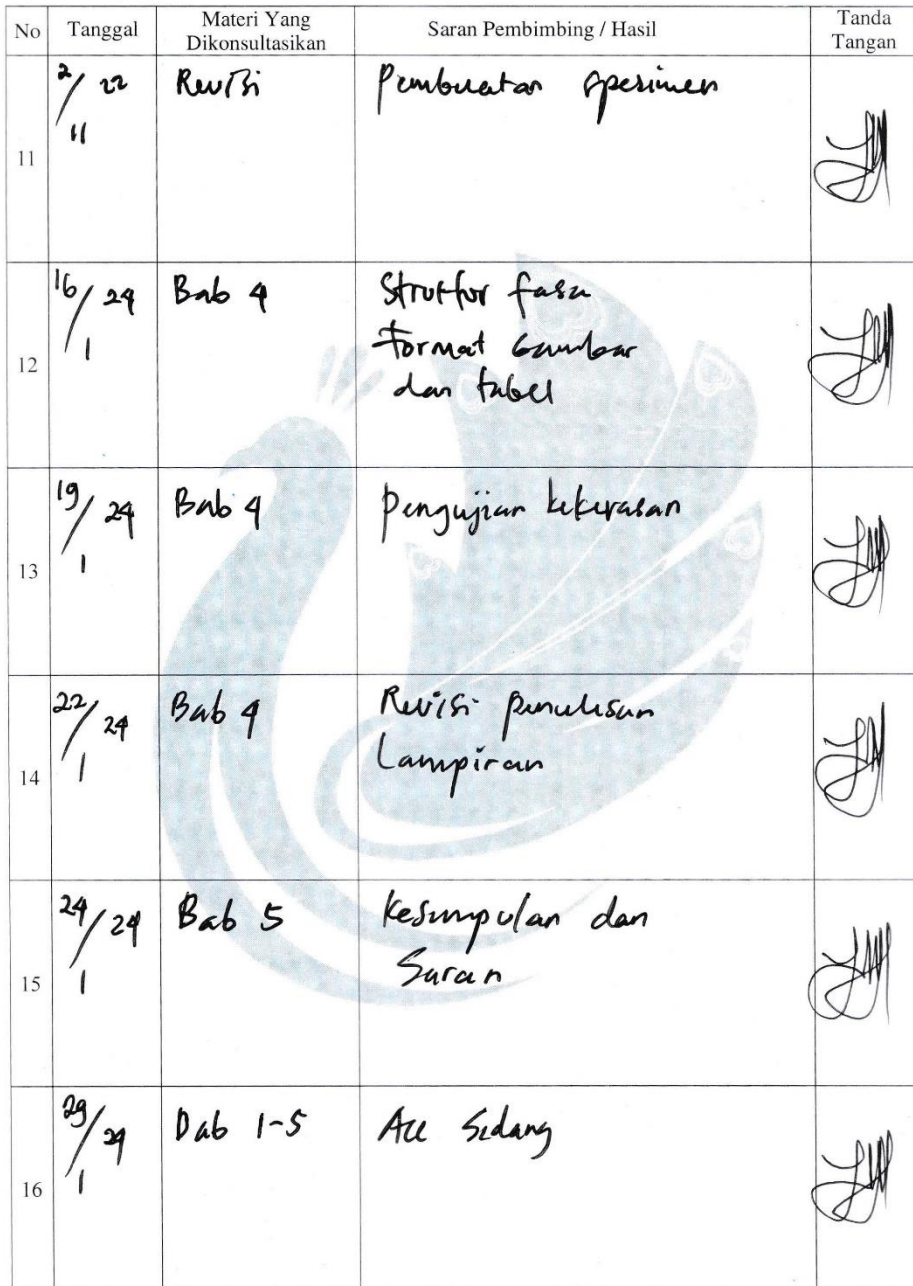 No Tanggal Materi Yang Dikonsultasikan Saran Pembimbing / Hasil Tanda Tangan
11 2/11 22 Revisi Pembuatan spesimen
12 16/1 24 Bab 4 Struktur fasa
Format Gambar
dan tabel
13 19/1 24 Bab 4 Pengujian kekerasan
14 22/1 24 Bab 4 Revisi penulisan
Lampiran
15 24/1 24 Bab 5 Kesimpulan dan
Saran
16 29/1 24 Bab 1-5 Acc Sidang